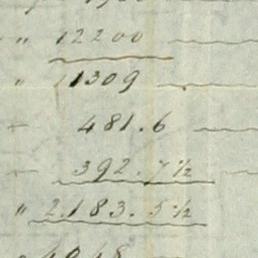 " 12200
" 1309
481.6
392.7½
" 2.183.5½